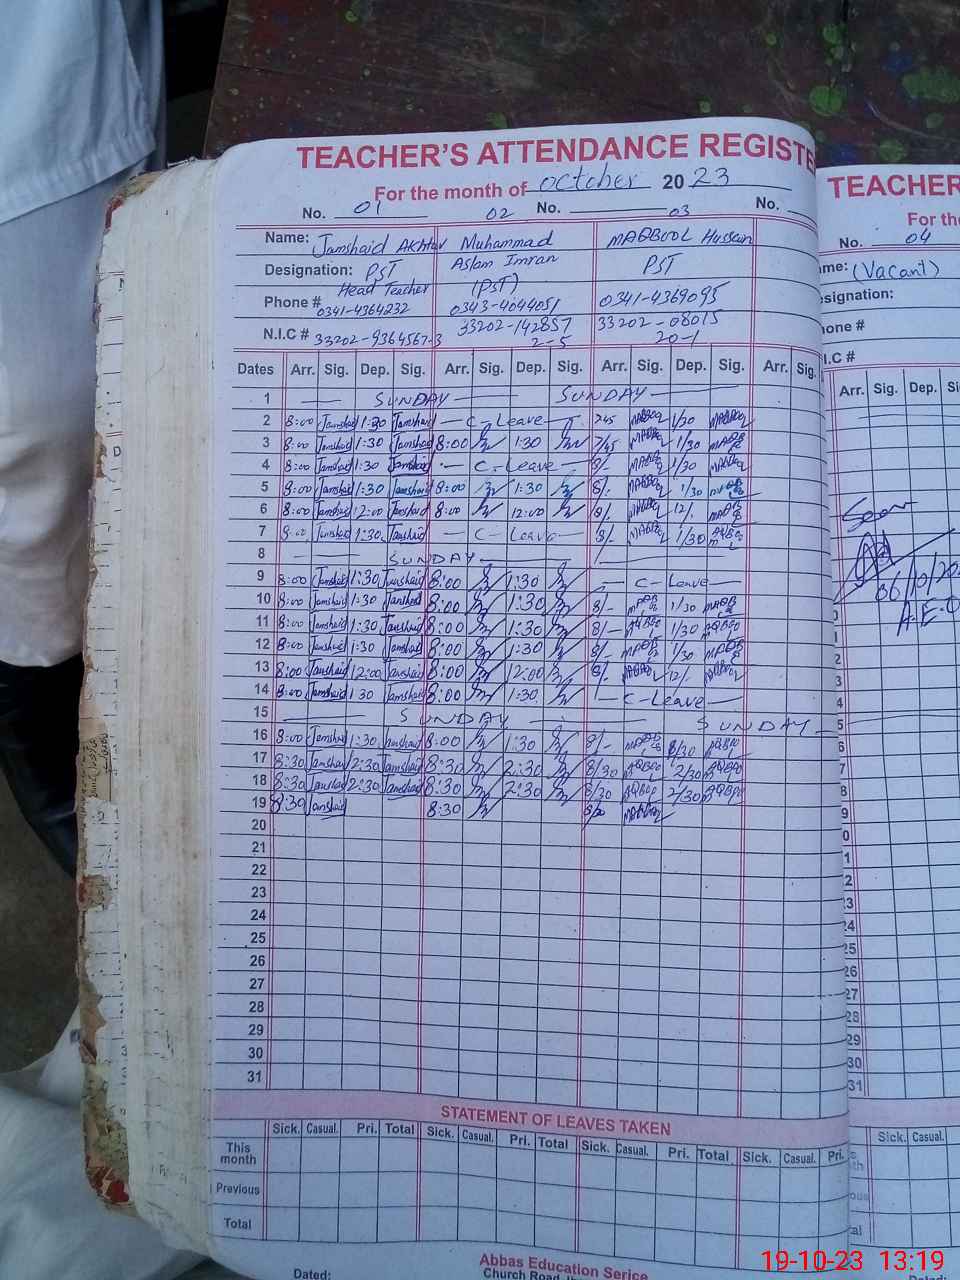 TEACHER'S ATTENDANCE REGISTE
For the month of October 2023
No. 01 02 No. 03 No.
Name: Jamshaid Akhtar Muhammad Aslam Imran MAQBOOL Hussain
Designation: PST Head Teacher (PST) PST
Phone # 0341-4364232 0343-4044051 0341-4369095
N.I.C # 33202-9364567-3 33202-142857 2-5 33202-08015 20-1
Dates Arr. Sig. Dep. Sig. Arr. Sig. Dep. Sig. Arr. Sig. Dep. Sig. Arr. Sig.
1 SUNDAY SUNDAY
2 8:00 Jamshaid 1:30 Jamshaid C-Leave 7/45 1/30
3 8:00 Jamshaid 1:30 Jamshaid 8:00 1:30 7/45 1/30
4 8:00 Jamshaid 1:30 Jamshaid C-Leave 8/- 1/30
5 8:00 Jamshaid 1:30 Jamshaid 8:00 1:30 8/- 1/30
6 8:00 Jamshaid 12:00 Jamshaid 8:00 12:00 8/- 12/-
7 8:00 Jamshaid 1:30 Jamshaid C-Leave 8/- 1/30
8 SUNDAY
9 8:00 Jamshaid 1:30 Jamshaid 8:00 1:30 C-Leave
10 8:00 Jamshaid 1:30 Jamshaid 8:00 1:30 8/- 1/30
11 8:00 Jamshaid 1:30 Jamshaid 8:00 1:30 8/- 1/30
12 8:00 Jamshaid 1:30 Jamshaid 8:00 1:30 8/- 1/30
13 8:00 Jamshaid 12:00 Jamshaid 8:00 12:00 8/- 12/-
14 8:00 Jamshaid 1:30 Jamshaid 8:00 1:30 C-Leave
15 SUNDAY SUNDAY
16 8:00 Jamshaid 1:30 Jamshaid 8:00 1:30 8/- /30
17 8:30 Jamshaid 2:30 Jamshaid 8:30 2:30 8/30 2/30
18 8:30 Jamshaid 2:30 Jamshaid 8:30 2:30 8/30 2/30
19 8:30 Jamshaid 8:30 8/30
20
21
22
23
24
25
26
27
28
29
30
31
STATEMENT OF LEAVES TAKEN
Sick. Casual. Pri. Total Sick. Casual. Pri. Total Sick. Casual. Pri. Total Sick. Casual. Pri.
This month
Previous
Total
Dated:
Abbas Education Serice
Church Road,
TEACHER
For the
No. 04
me: (Vacant)
signation:
one #
I.C #
Arr. Sig. Dep. Sig.
A.E.O
Sick. Casual.
19-10-23 13:19